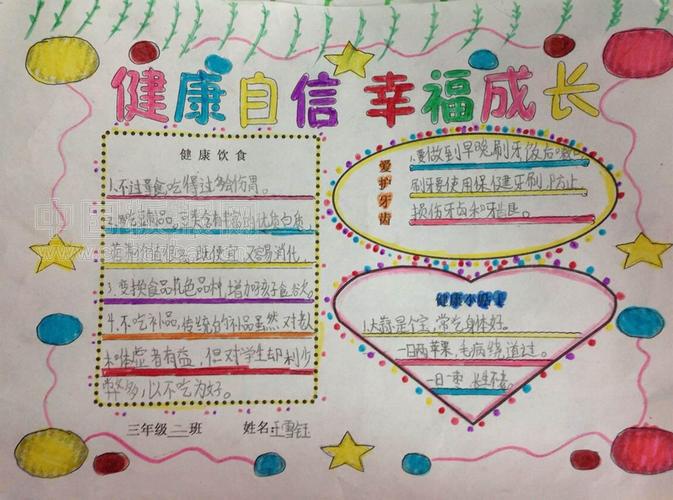 健康自信 幸福成长
健康饮食
1.不过量食,吃得过多会伤胃。
2.吃豆制品。豆类含有丰富的优质蛋白质,
既便宜 又容易消化,
3.变换食品花色品种,增加孩子食欲。
4.不吃补品,传统的补品虽然对老
体虚者有益,但对学生却利少
弊多,以不吃为好。
三年级二班 姓名:王雪钰
爱护牙齿
1.要做到早晚刷牙饭后漱
刷牙要使用保健牙刷,防止
损伤牙齿和牙龈。
健康小贴士
1.大蒜是个宝,常吃身体好。
一日两苹果,毛病绕道过。
一日一枣 长生不老。